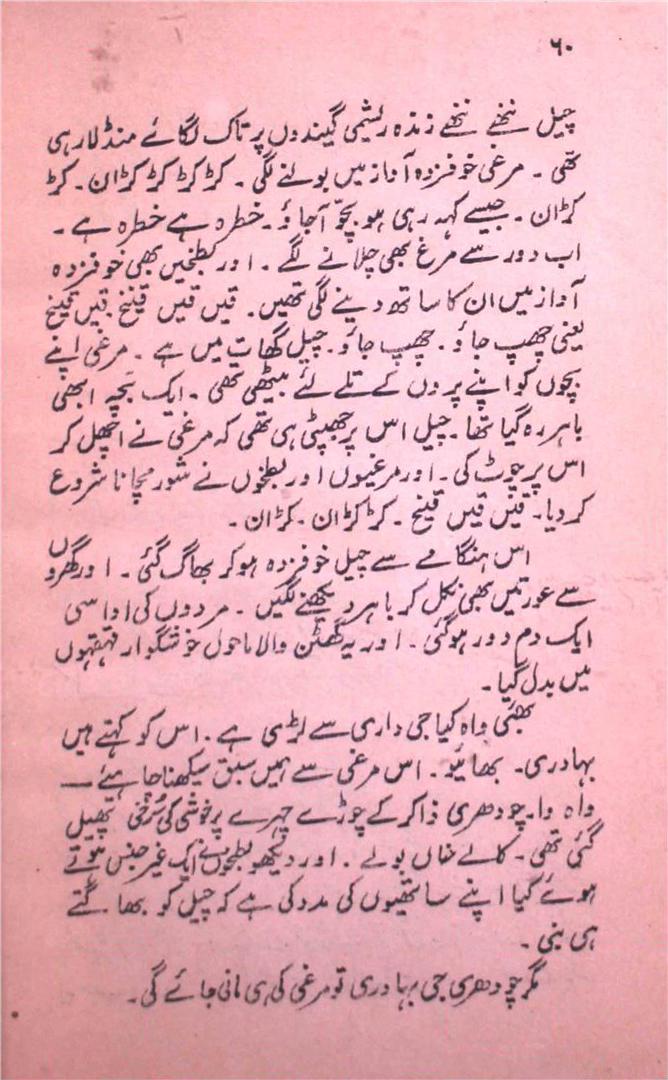 ۶۰
چیل ننھے ننھے زندہ ریشمی گیندوں پر تاک لگائے منڈلا رہی
تھی ۔ مرغی خوفزدہ آواز میں بولنے لگی ۔ کڑ کڑ کڑ کڑان ۔ کڑ
کڑان ۔ جیسے کہہ رہی ہو بچّو آجاؤ ۔ خطرہ ہے خطرہ ہے ۔
اب دور سے مرغ بھی چلانے لگے ۔ اور بطخیں بھی خوفزدہ
آواز میں ان کا ساتھ دینے لگی تھیں ۔ قیں قیں قینخ قیں قینخ
یعنی چھپ جاؤ ۔ چھپ جاؤ ۔ چیل گھات میں ہے ۔ مرغی اپنے
بچوں کو اپنے پروں کے تلے لئے بیٹھی تھی ۔ ایک بچہ ابھی
باہر رہ گیا تھا ۔ چیل اس پر جھپٹی ہی تھی کہ مرغی نے اچھل کر
اس پر چوٹ کی ۔ اور مرغیوں اور بطخوں نے شور مچانا شروع
کر دیا ۔ قیں قیں قینخ ۔ کڑ کڑان ۔ کڑان ۔
اس ہنگامے سے چیل خوفزدہ ہو کر بھاگ گئی ۔ اور گھروں
سے عورتیں بھی نکل کر باہر دیکھنے لگیں ۔ مردوں کی اداسی
ایک دم دور ہوگئی ۔ اور یہ گھٹن والا ماحول خوشگوار قہقہوں
میں بدل گیا ۔
بھئی واہ کیا جی داری سے لڑی ہے ۔ اس کو کہتے ہیں
بہادری ۔ بھائیو ۔ اس مرغی سے ہمیں سبق سیکھنا چاہئے —
واہ وا ۔ چودھری ذاکر کے چوڑے چہرے پر خوشی کی سُرخی پھیل
گئی تھی ۔ کالے خاں بولے ۔ اور دیکھو بطخوں نے ایک غیر جنس ہوتے
ہوئے گیا اپنے ساتھیوں کی مدد کی ہے کہ چیل کو بھاگتے
ہی بنی ۔
مگر چودھری جی بہادری تو مرغی کی ہی مانی جائے گی ۔